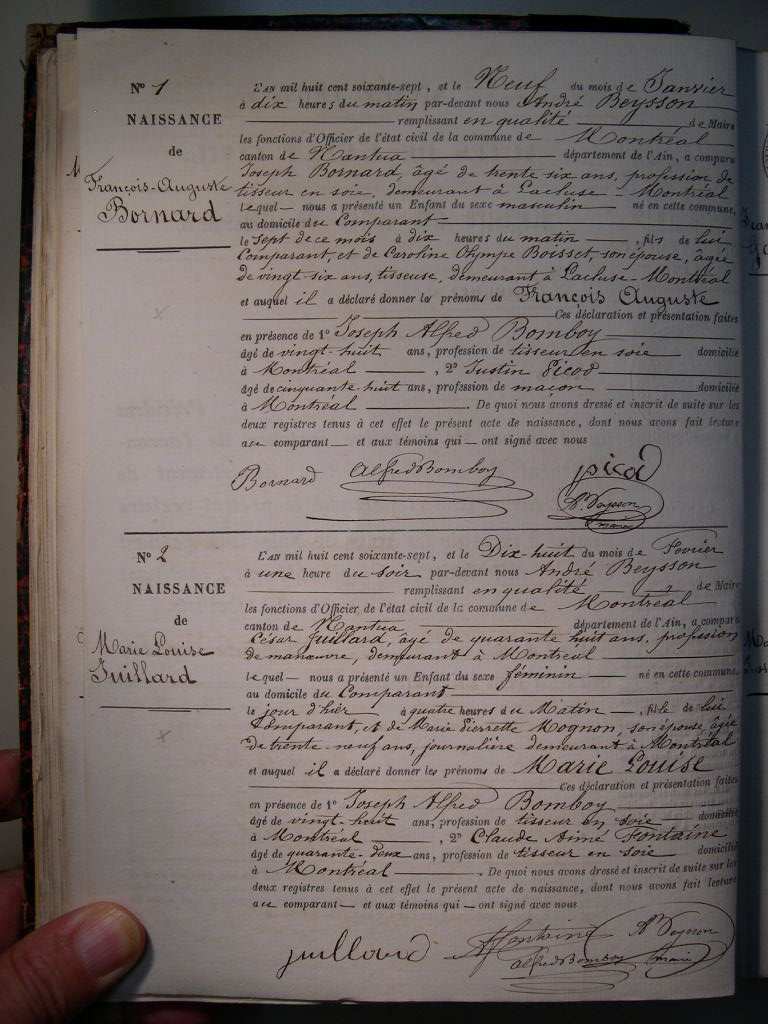 N° 1
NAISSANCE
de
François-Auguste
Bornard
L'AN mil huit cent soixante-sept, et le Neuf du mois de Janvier
à dix heures du matin par-devant nous André Beysson
remplissant en qualité de Maire
les fonctions d'Officier de l'état civil de la commune de Montréal
canton de Nantua département de l'Ain, a comparu
Joseph Bornard, âgé de trente six ans, profession de
tisseur en soie, demeurant à Lacluse-Montréal
lequel nous a présenté un Enfant du sexe masculin né en cette commune,
au domicile du Comparant
le sept de ce mois à dix heures du matin, fils de lui
Comparant, et de Caroline Olympe Boisset, son épouse, âgée
de vingt-six ans, tisseuse, demeurant à Lacluse-Montréal
et auquel il a déclaré donner les prénoms de François Auguste
Ces déclaration et présentation faites
en présence de 1° Joseph Alfred Bomboy
âgé de vingt-huit ans, profession de tisseur en soie domicilié
à Montréal, 2° Justin Picod
âgé de cinquante-huit ans, profession de maçon domicilié
à Montréal. De quoi nous avons dressé et inscrit de suite sur les
deux registres tenus à cet effet le présent acte de naissance, dont nous avons fait lecture
au comparant et aux témoins qui ont signé avec nous
Bornard Alfred Bomboy picod
A. Beysson
maire
N° 2
NAISSANCE
de
Marie Louise
Juillard
L'AN mil huit cent soixante-sept, et le Dix-huit du mois de Février
à une heure du soir par-devant nous André Beysson
remplissant en qualité de Maire
les fonctions d'Officier de l'état civil de la commune de Montréal
canton de Nantua département de l'Ain, a comparu
César Juillard, âgé de quarante huit ans, profession
de manœuvre, demeurant à Montréal
lequel nous a présenté un Enfant du sexe féminin né en cette commune
au domicile du Comparant
le jour d'hier à quatre heures du Matin, fille de lui
Comparant, et de Marie Pierrette Mognon, son épouse, âgée
de trente-neuf ans, journalière demeurant à Montréal
et auquel il a déclaré donner les prénoms de Marie Louise
Ces déclaration et présentation faites
en présence de 1° Joseph Alfred Bomboy
âgé de vingt-huit ans, profession de tisseur en soie domicilié
à Montréal, 2° Claude Aimé Fontaine
âgé de quarante-deux ans, profession de tisseur en soie domicilié
à Montréal. De quoi nous avons dressé et inscrit de suite sur les
deux registres tenus à cet effet le présent acte de naissance, dont nous avons fait lecture
au comparant et aux témoins qui ont signé avec nous
juillard Afontaine A. Beysson
alfred Bomboy maire